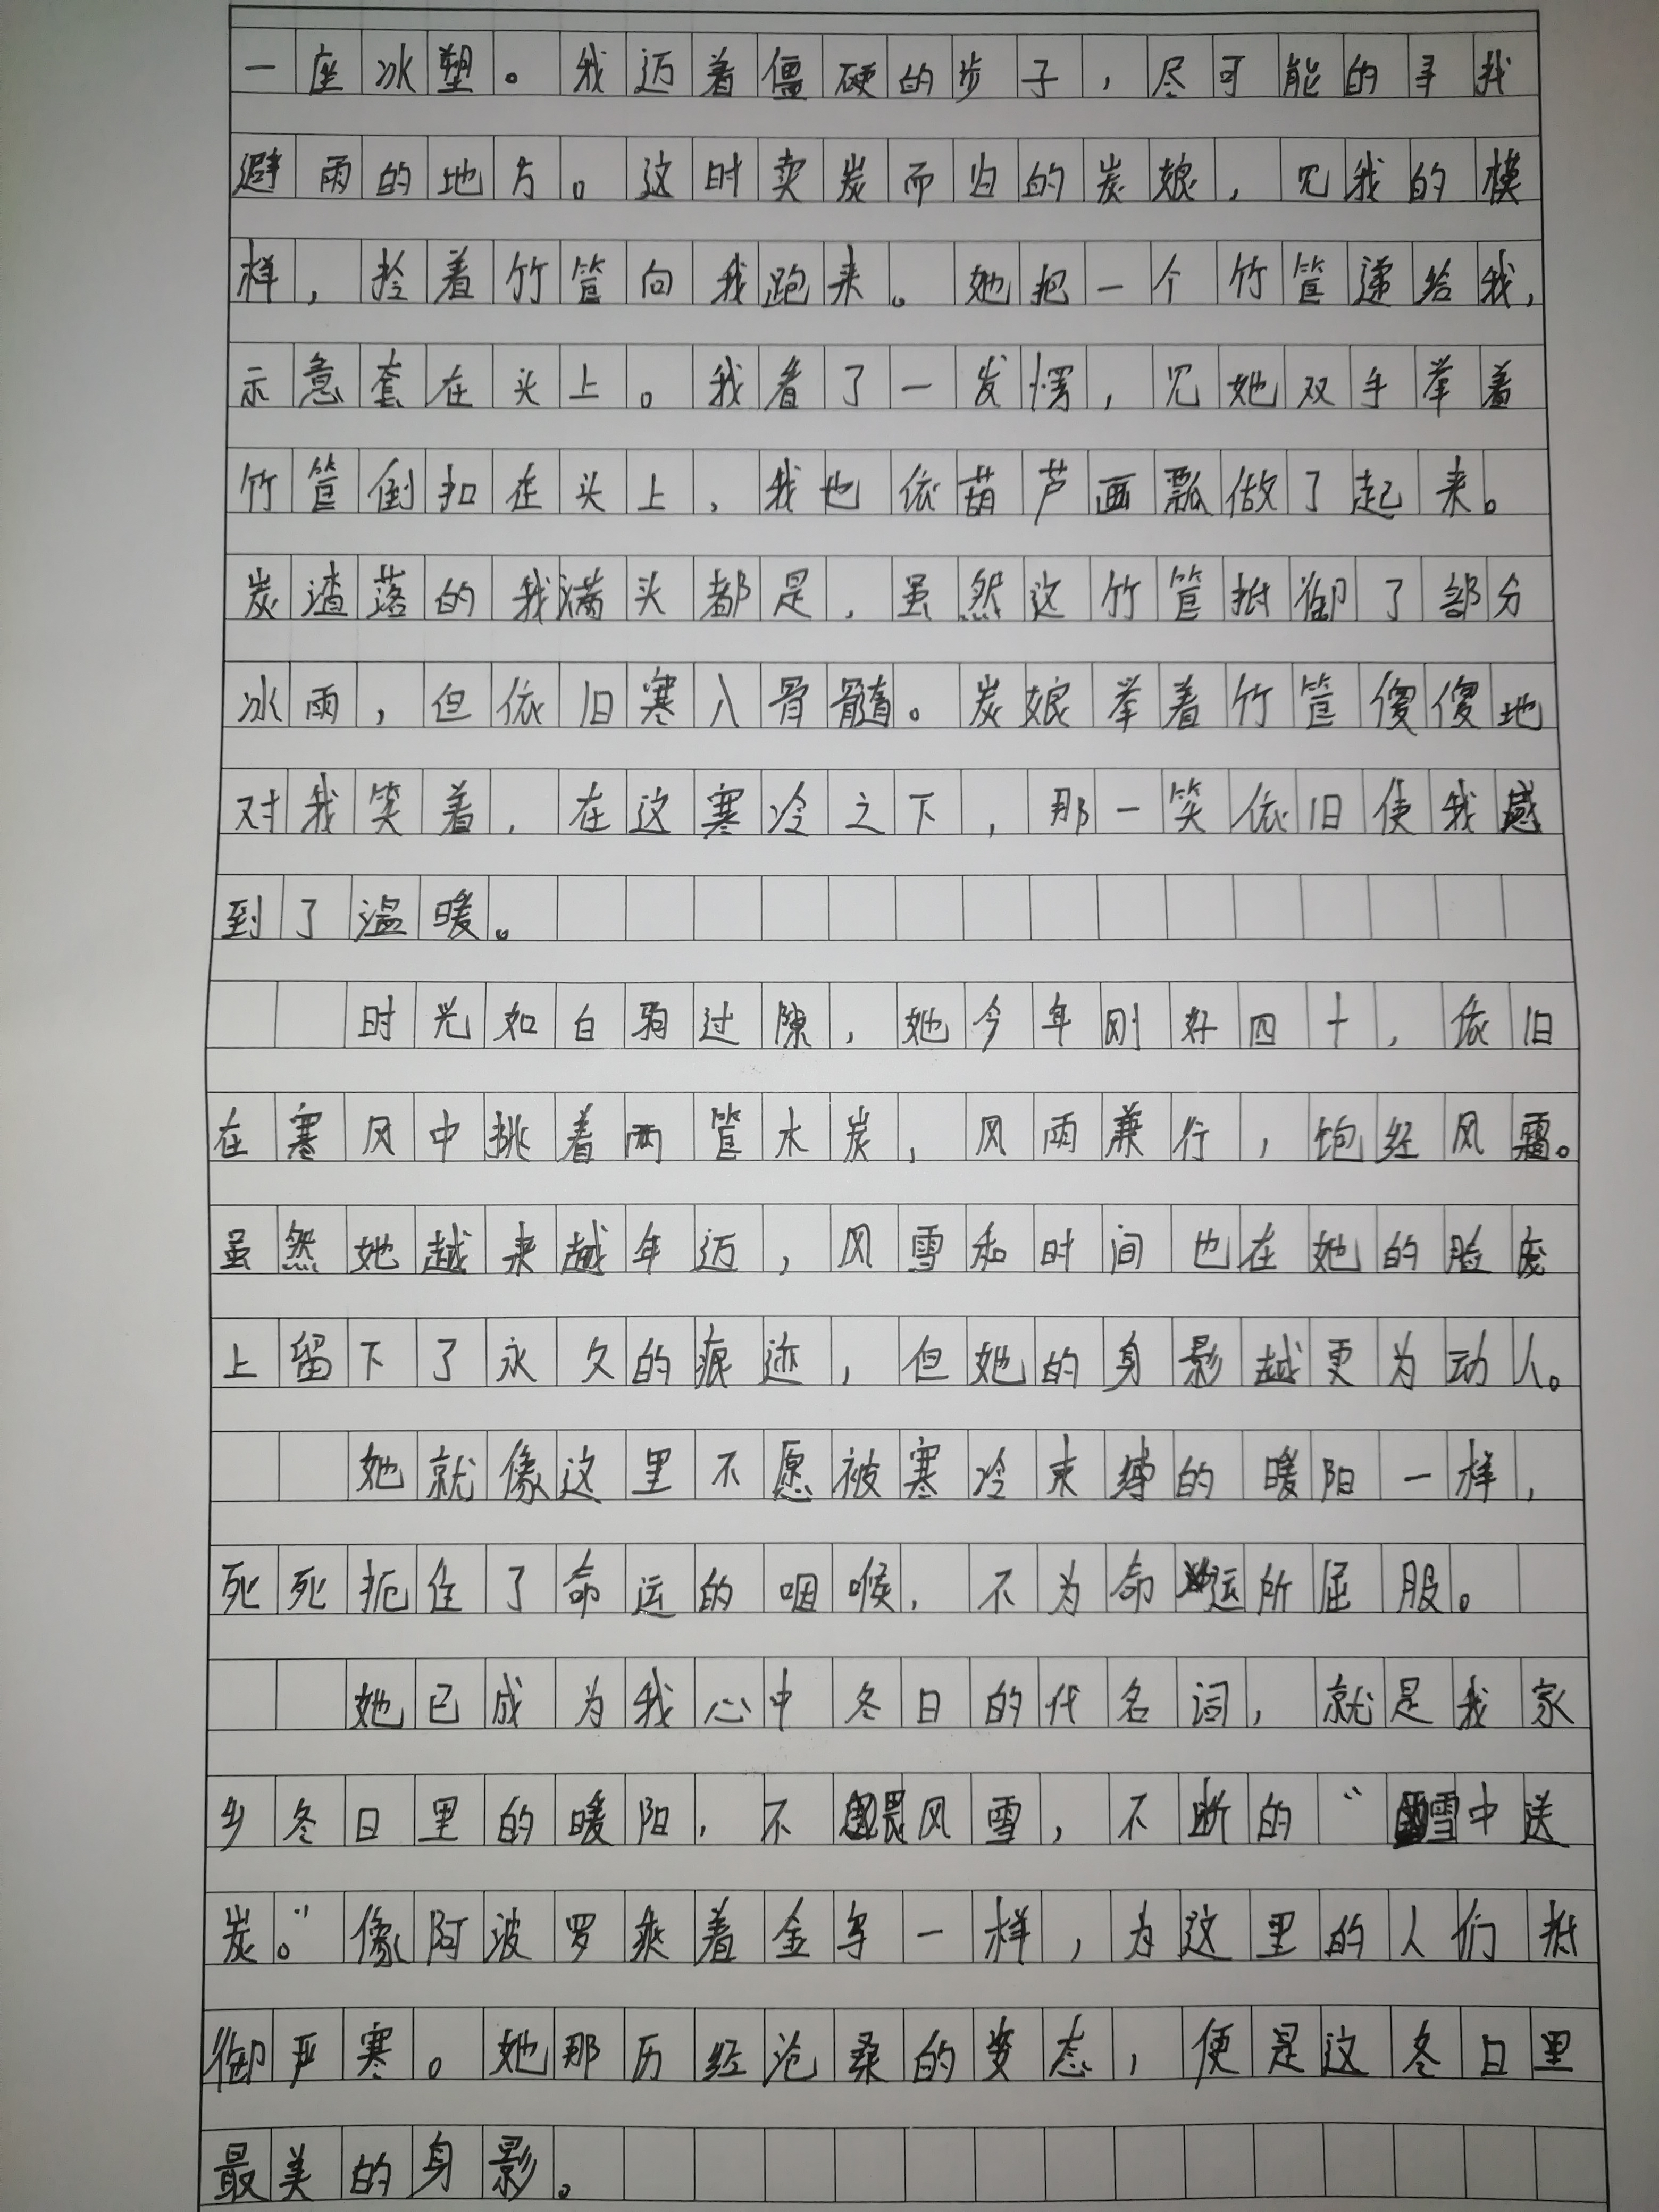 一座冰塑。我迈着僵硬的步子，尽可能的寻找
避雨的地方。这时卖炭而归的炭娘，见我的模
样，拎着竹筐向我跑来。她把一个竹筐递给我，
示意套在头上。我看了一发愣，见她双手举着
竹筐倒扣在头上，我也依葫芦画瓢做了起来。
炭渣落的我满头都是，虽然这竹筐抵御了部分
冰雨，但依旧寒入骨髓。炭娘举着竹筐傻傻地
对我笑着，在这寒冷之下，那一笑依旧使我感
到了温暖。
时光如白驹过隙，她今年刚好四十，依旧
在寒风中挑着两筐木炭，风雨兼行，饱经风霜。
虽然她越来越年迈，风雪和时间也在她的脸庞
上留下了永久的痕迹，但她的身影越更为动人。
她就像这里不愿被寒冷束缚的暖阳一样，
死死扼住了命运的咽喉，不为命运所屈服。
她已成为我心中冬日的代名词，就是我家
乡冬日里的暖阳，不畏风雪，不断的“雪中送
炭。”像阿波罗乘着金车一样，为这里的人们抵
御严寒。她那历经沧桑的姿态，便是这冬日里
最美的身影。